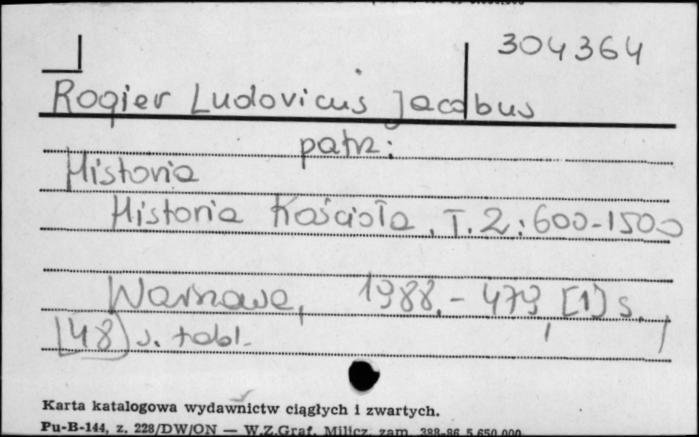 304364
Rogier Ludovicus Jacobus
patrz:
Historia
Historia Kościoła, T. 2: 600-1500
Warszawa, 1988. - 479, [1] s.,
[48] s. tabl.
Karta katalogowa wydawnictw ciągłych i zwartych.
Pu-B-144, z. 228/DW/ON — W.Z.Graf. Milicz, zam. 388-86 5.650.000